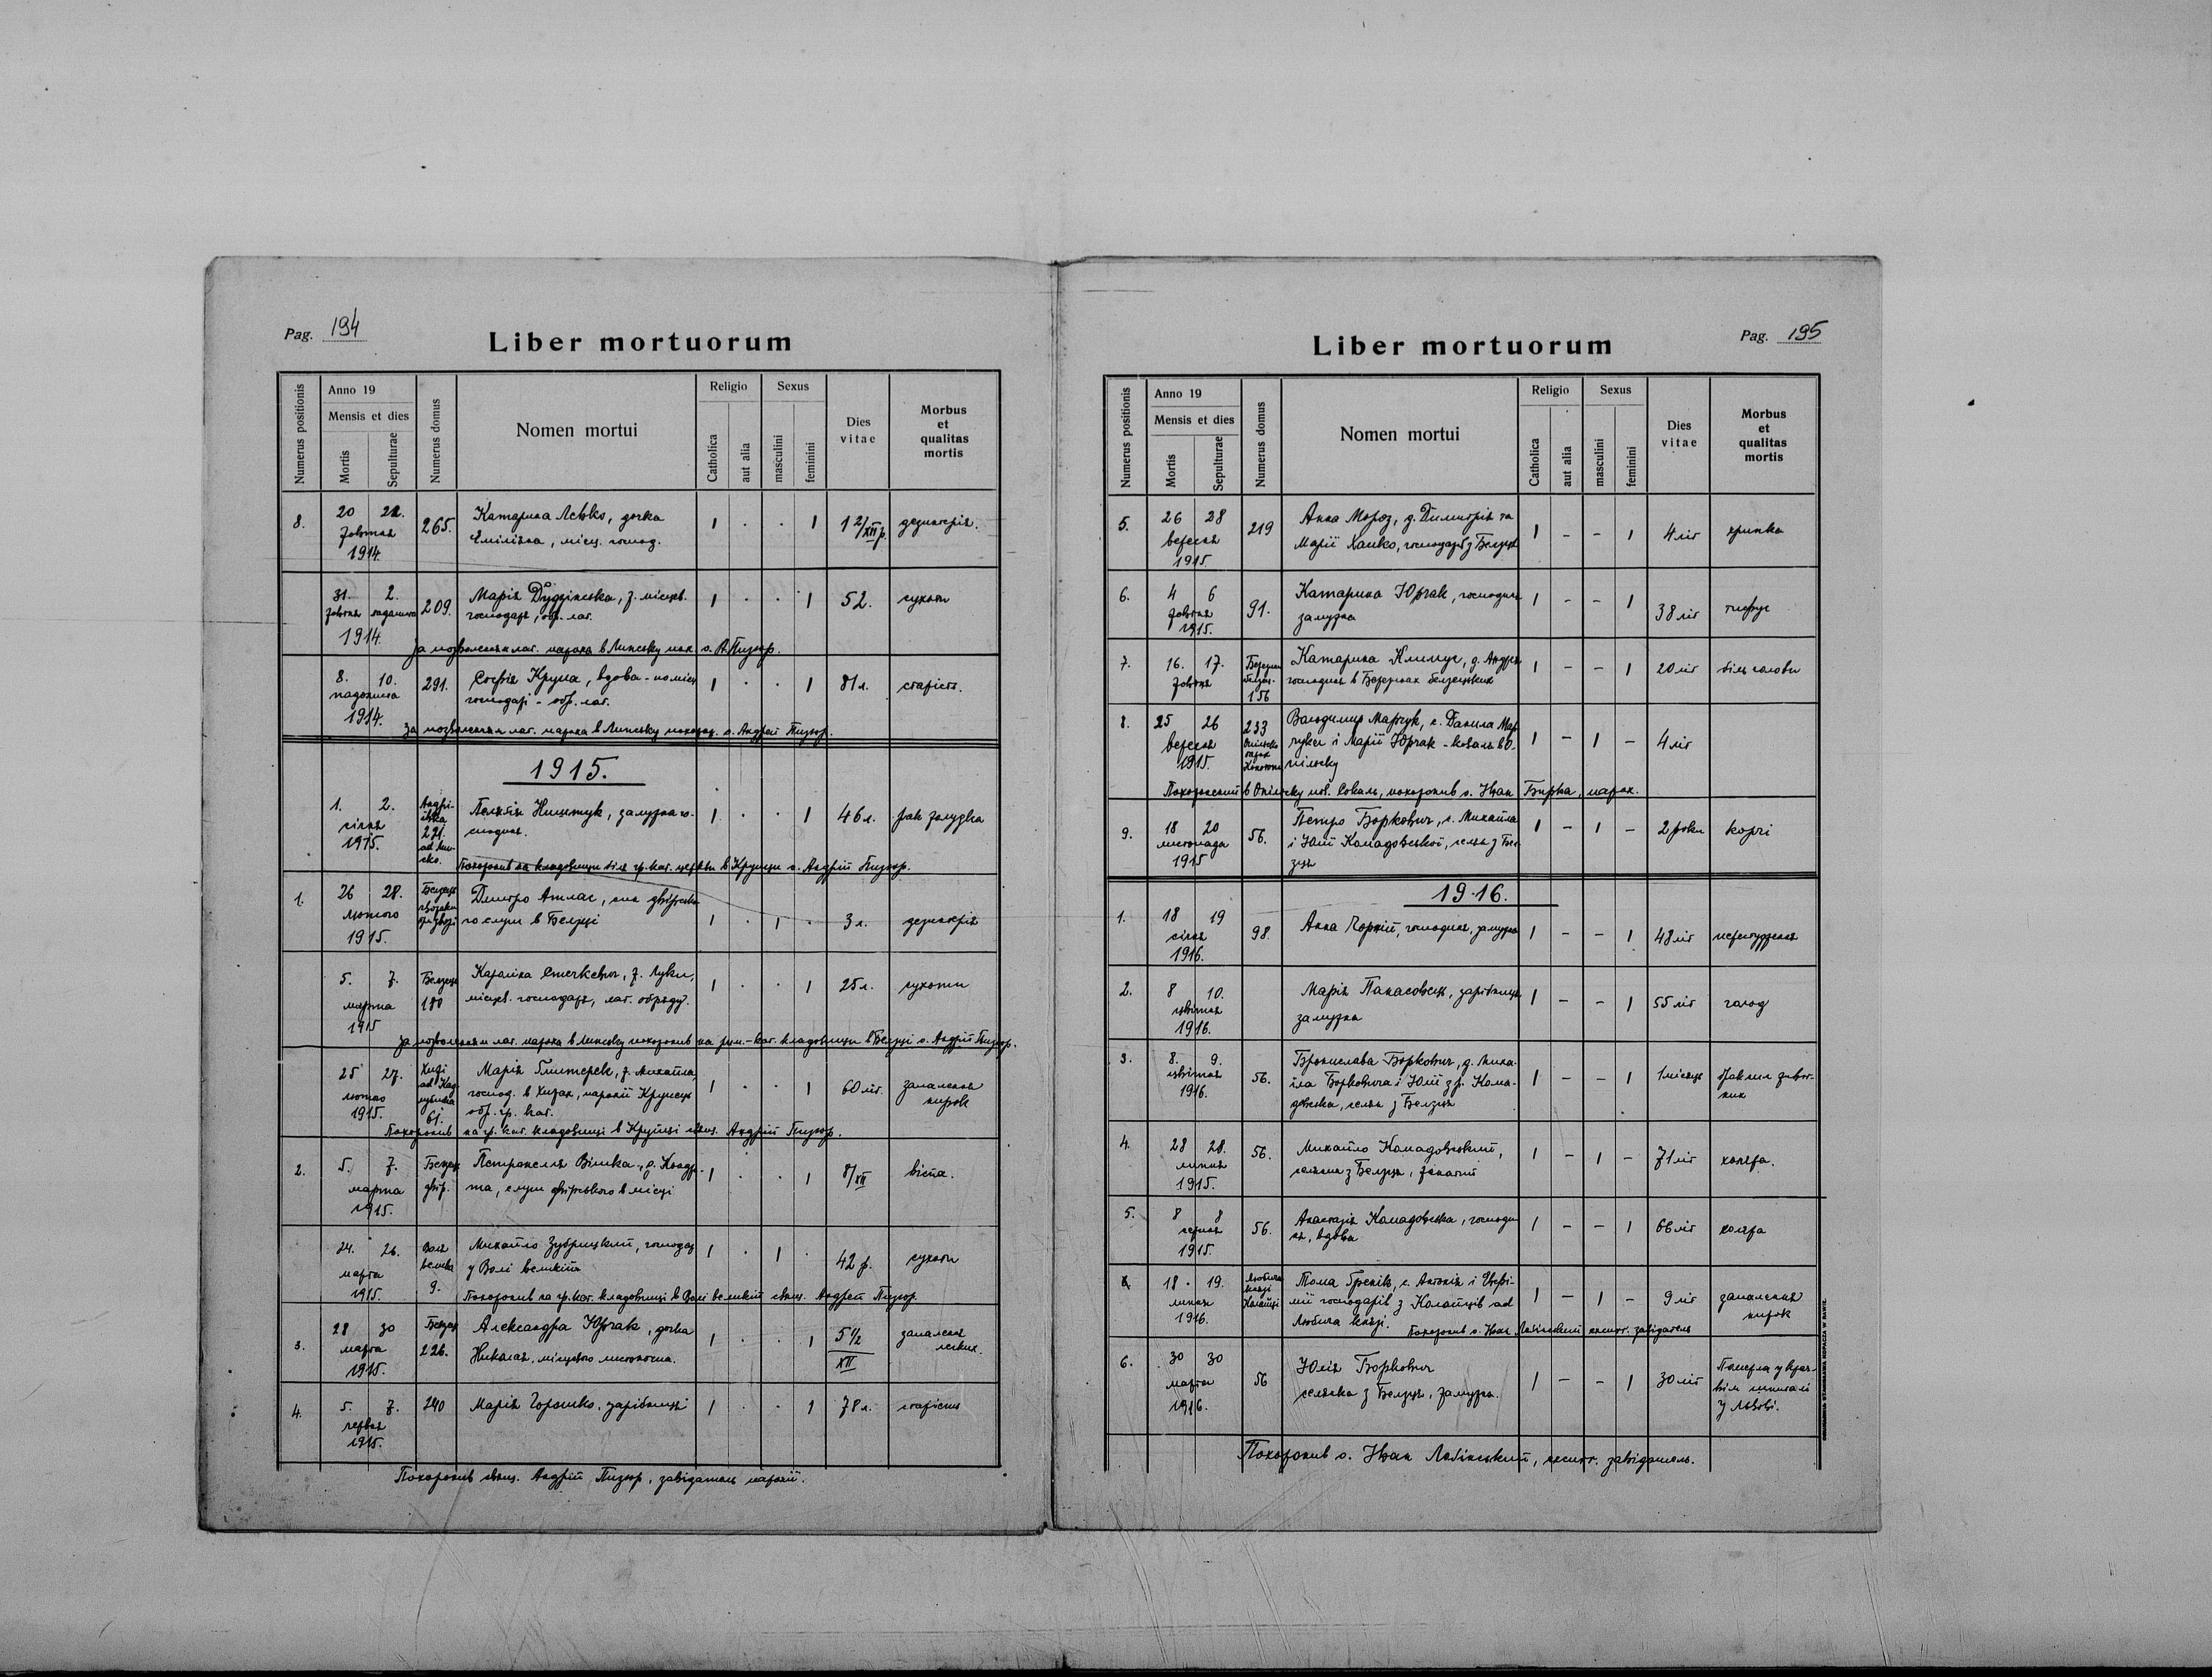 Pag. 194
Liber mortuorum
Numerus positionis
Anno 19
Mensis et dies
Mortis
Sepulturae
Numerus domus
Nomen mortui
Religio
Catholica
aut alia
Sexus
masculini
feminini
Dies vitae
Morbus et qualitas mortis
8. 20 22. 265. Катарина Левко, дочка 1 . . 1 1 2/XII р. дезинтерія.
жовтня Еміліяна, місц. господ.
1914.
31. 2. 209. Марія Дудзінська, ж. місцев. 1 . . 1 52. сухоти
жовтня падолиста господаря, обр. лат.
1914.
За позволенням лат. пароха в Липську пох. о. А. Пизюр.
8. 10. 291. Софія Крупа, вдова - по місц. 1 . . 1 81 л. старість.
падолиста господарі - обр. лат.
1914.
За позволенням лат. пароха в Липську поховав о. Андрей Пизюр.
1915.
1. 2. Андрі-
івка
221.
ad Лип-
ско.
Пелягія Нищ­тук, замужна го- 1 . . 1 46 л.
січня сподиня.
1915.
Похоронив на кладовищи біля гр. кат. церкви в Крупци о. Андрій Пизюр.
1. 26 28. Дмитро Атлас, син двірсько- 1 . 1 . 3 л. дезинтерія
лютого го слуги в Белзці
1915.
5. 7. Белзець Кароліна Стечкевич, ж. Луки, 1 . . 1 25 л. сухоти
марта 180 місцев. господаря, лат. обряду.
1915
За позволенням лат. пароха в Липську похоронив на рим.-кат. кладовищи в Белзці о. Андрій Пизюр.
25 27. Хижі
ad
61.
Марія Гмитерек, ж. Михайла, 1 . . 1 60 літ. запалення
лютого господ. в Хижах, парохії Крупець нирок
1915. обр. гр. кат.
Похоронив на гр. кат. кладовищі в Крупці свящ. Андрій Пизюр.
2. 5. 7. Белзец Петронеля Вішка, д. Кондра- 1 . . 1 8/XII віспа.
марта двір. та, слуги двірського в місці
1915.
24. 26. Воля Михайло Зубрицкий, господар 1 . 1 . 42 р. сухоти
марта велика у Волі великій
1915. 9. Похоронив на гр. кат. кладовищі в Волі великій свящ. Андрей Пизюр.
3. 28 30 Белзец Александра Юрчак, дочка 1 . . 1 5 1/2 запалення
марта 226. Николая, місцевого листоноша. XII легких.
1915.
4. 5. 7. 240 Марія Горошко, зарібниця 1 . . 1 78 л. старість
червня
1915.
Похоронив свящ. Андрій Пизюр, завідатель парохії.
Liber mortuorum
Pag. 195
Numerus positionis
Anno 19
Mensis et dies
Mortis
Sepulturae
Numerus domus
Nomen mortui
Religio
Catholica
aut alia
Sexus
masculini
feminini
Dies vitae
Morbus et qualitas mortis
5. 26 28 219 Анна Мороз, д. Димитрія та 1 - - 1 4 літ хрипка
вересня Марії Ханко, господарів з Белзця
1915.
6. 4 6 91. Катарина Юрчак, господиня 1 - - 1 38 літ тифус
жовтня замужна
1915.
7. 16. 17. Катарина Климус, д. Андрея 1 - - 1 20 літ біль голови
жовтня 156 господиня в Березинах белзецьких
8. 25 26 233 Володимир Марчук, с. Данила Мар- 1 - 1 - 4 літ
вересня чука і Марії Юрчак - коваля в О-
1915. пільську
Похоронений в Опільську пов. Сокаль, похоронив о. Иван Бирка, парох.
9. 18 20 56. Петро Боркович, с. Михайла 1 - 1 - 2 роки корчі
листопада і Юлії Кападовської, селян з Бел-
1915 зця
1916.
1. 18 19 98. Анна Чорній, господиня, замужна 1 - - 1 48 літ
січня
1916.
2. 8 10. Марія Панасовець, зарібниця 1 - - 1 55 літ голод
цвітня замужна
1916.
3. 8. 9. 56. Броніслава Боркович, д. Миха- 1 - - 1 1 місяць
цвітня іла Борковича і Юлії з р. Капа-
1916. довська, селян з Белзця
4. 28 28. 56. Михайло Кападовський, 1 - 1 - 71 літ холєра.
липня селянин з Белзця, жонатий
1915.
5. 8 8 56. Анастазія Кападовська, господи- 1 - - 1 66 літ холєра
серпня ня, вдова
1915.
18. 19. Любича
князі
Колайці
Тома Гренів, с. Антонія і Евфі- 1 - 1 - 9 літ запалення
липня мії господарів з Колайців ad нирок
1916. Любича князі. Похоронив о. Иван Лабінський експоз. завідатель
6. 30 30 56 Юлія Боркович 1 - - 1 30 літ Померла у крає-
марта селянка з Белзця, замужна. вім шпиталі
1916. у Львові.
Похоронив о. Иван Лабінський, експоз. завідатель.
DRUKARNIA STANISŁAWA KOPACZA W RAWIE.